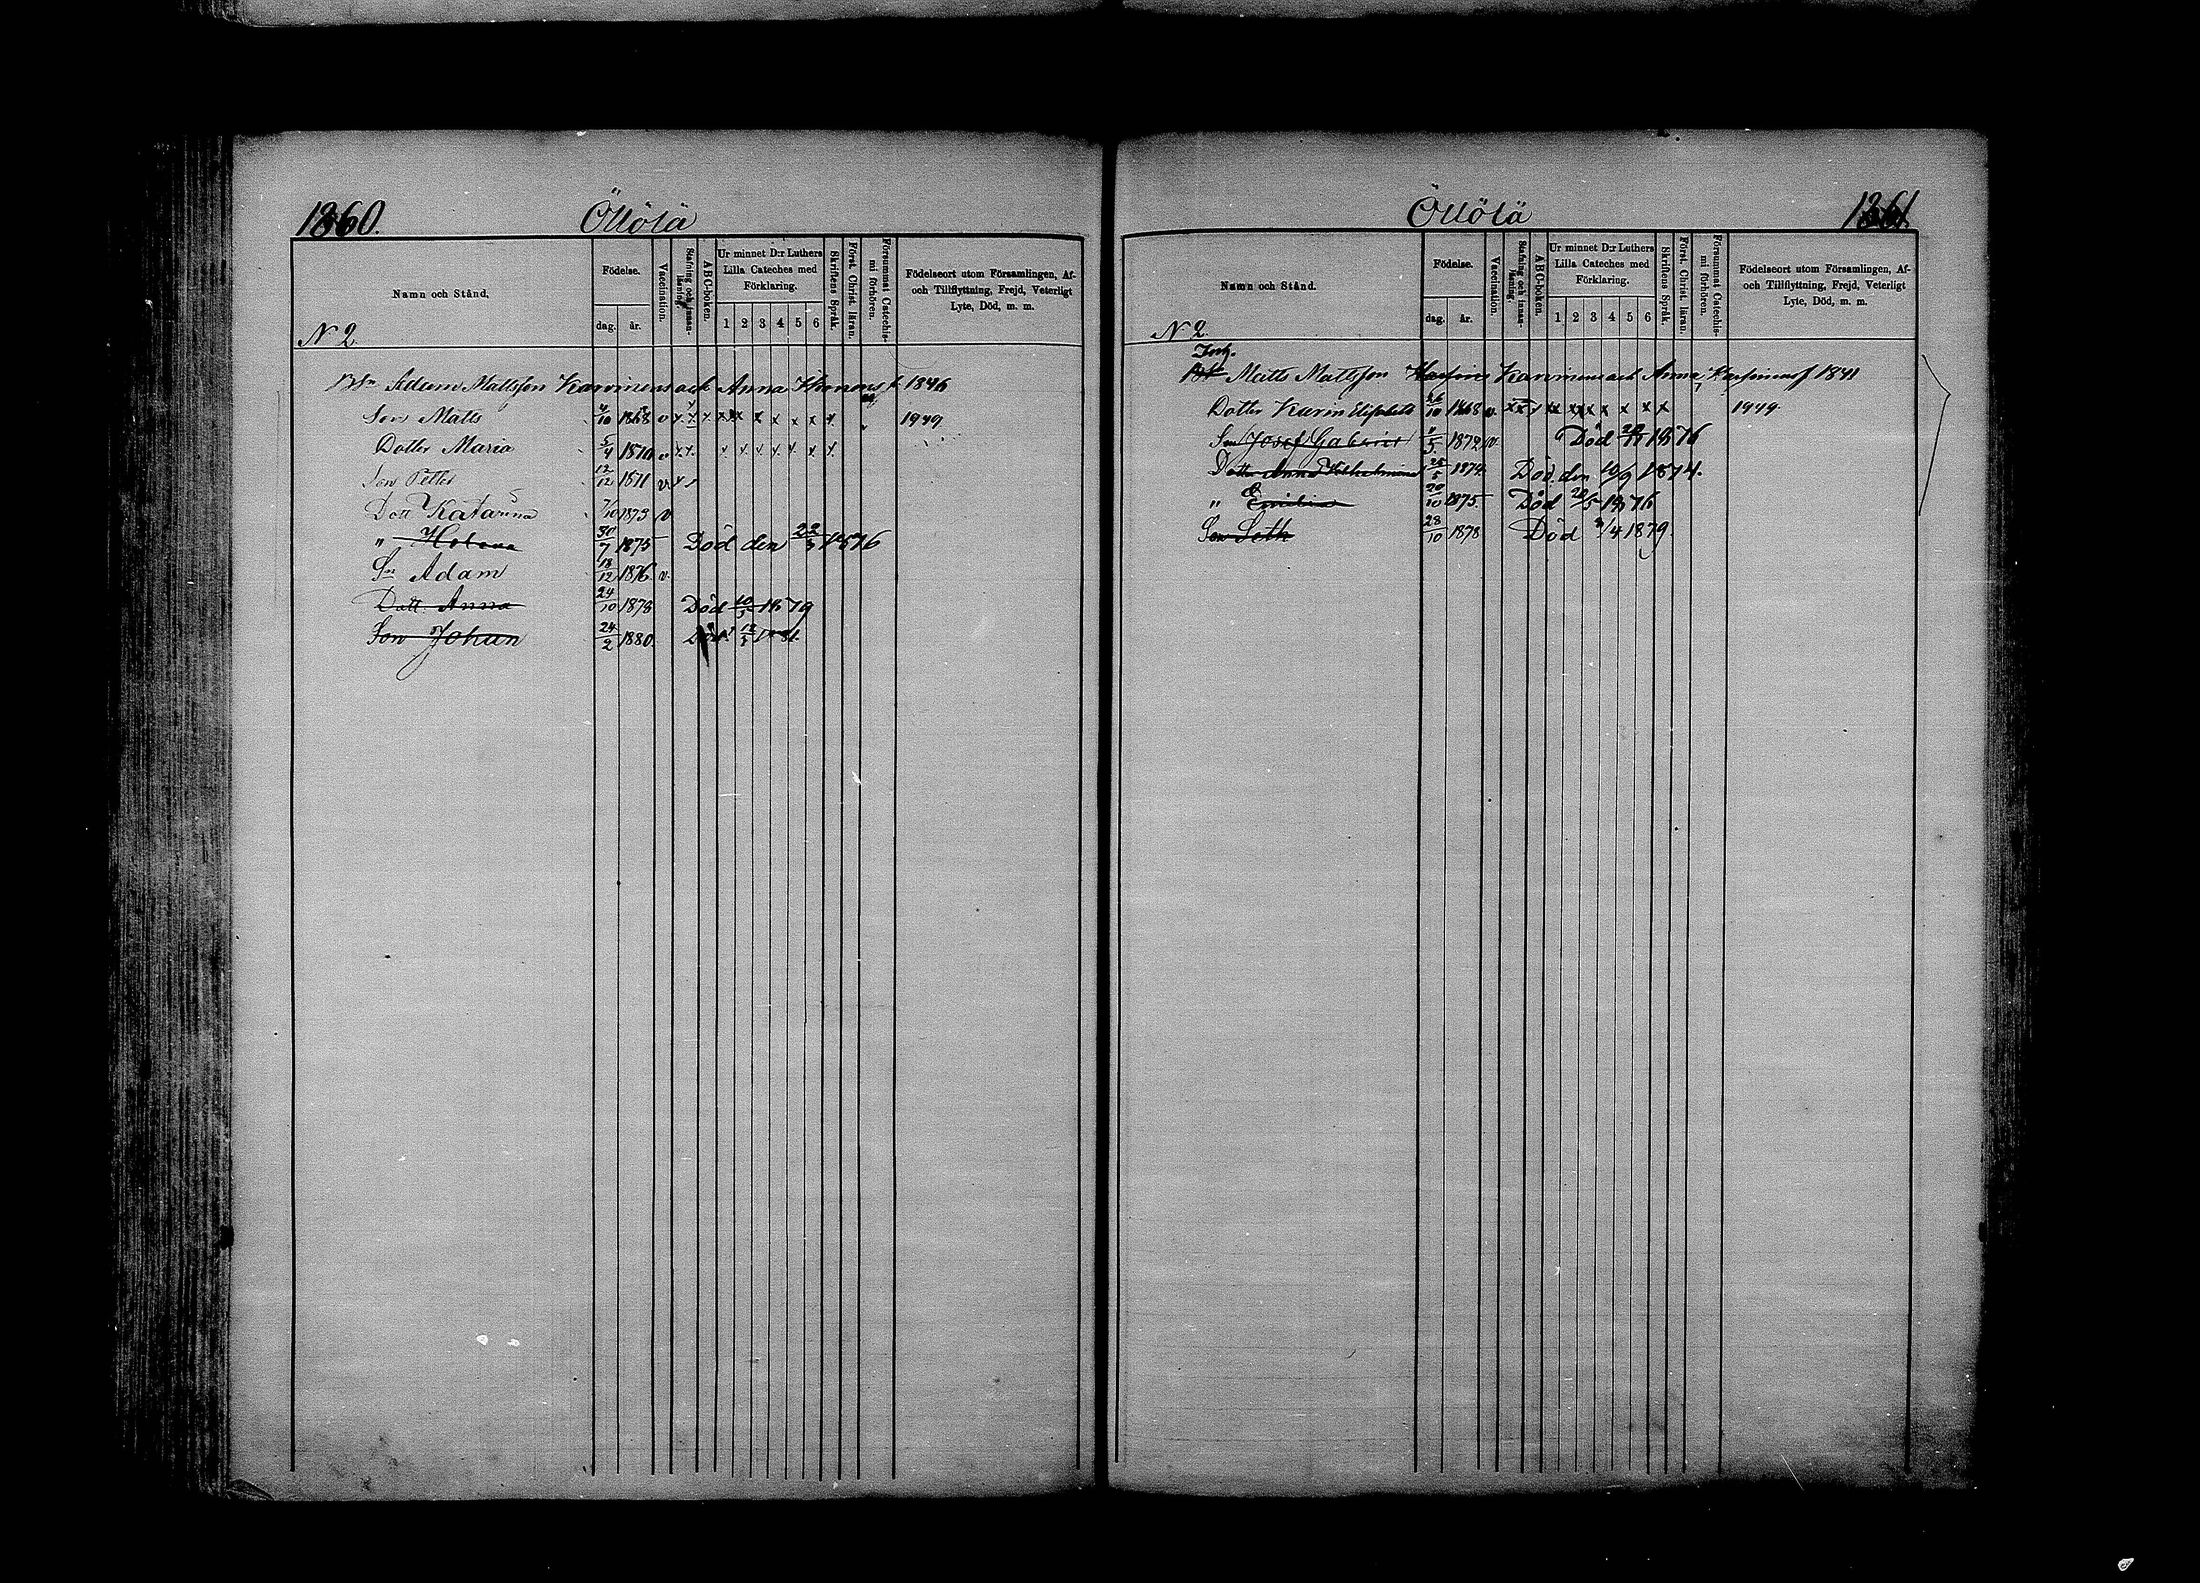 1360. Öllölä
Namn och Stånd.
Födelse.
dag. år.
Vaccination.
Stafning och innan-läsning.
A B C-boken.
Ur minnet D:r Luthers Lilla Cateches med Förklaring.
1 2 3 4 5 6
Skriftens Språk.
Först. Christ. läran.
Försummat Catechis-mi förhören.
Födelseort utom Församlingen, Af- och Tillflyttning, Frejd, Veterligt Lyte, Död, m. m.
N 2.
Adam Mattsson Karvinens och Anna f. 1846
Son Matts 10 1868 v 1949
Dotter Maria 5/4 1870 v
Son Petter 12/12 1871 v
Dott Katarina 7/10 1873 v
" Helena 30/7 1875 Död den 22/3 1876
Sn Adam 18/12 1876 v.
Dott. Anna 24/10 1878 Död 10/3 1879
Son Johan 24/2 1880 Död 12/3 1881.
Öllölä 1361.
Namn och Stånd.
Födelse.
dag. år.
Vaccination.
Stafning och innan-läsning.
A B C-boken.
Ur minnet D:r Luthers Lilla Cateches med Förklaring.
1 2 3 4 5 6
Skriftens Språk.
Först. Christ. läran.
Försummat Catechis-mi förhören.
Födelseort utom Församlingen, Af- och Tillflyttning, Frejd, Veterligt Lyte, Död, m. m.
N 2.
Inh.
Matts Mattsson Karvinens och Anna f 1841
Dotter Karin Elisabeth 26/10 1868 v. 1949.
Son Josef Gabriel 5 1872 v Död 1876
Dotter Anna Wilhelmina 25/5 1874. Död den 10/9 1874.
" Emilia 20/10 1875 Död 22/5 1876
Son Seth 28/10 1878 Död /4 1879.